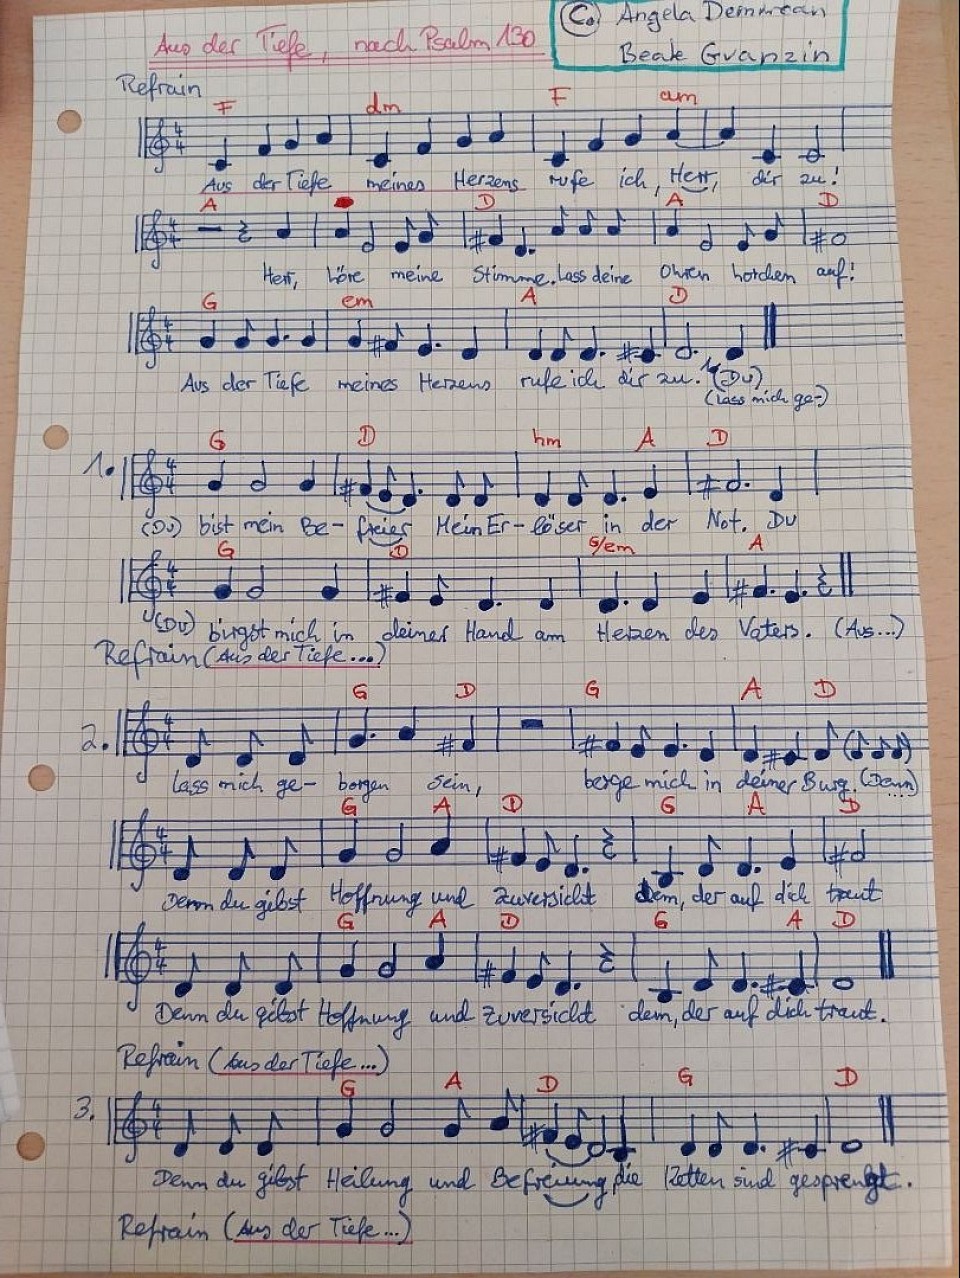 Aus der Tiefe, nach Psalm 130
C. Angela
Beate Granzin
Refrain
F dm F am
Aus der Tiefe meines Herzens rufe ich, Herr, dir zu!
A D A D
Herr, höre meine Stimme. Lass deine Ohren horchen auf!
G em A D
Aus der Tiefe meines Herzens rufe ich dir zu. 1. (Du)
(Lass mich ge-)
G D hm A D
1.
(Du) bist mein Be-freier Mein Er-löser in der Not. Du
G D G/em A
(Du) birgst mich in deiner Hand am Herzen des Vaters. (Aus...)
Refrain (Aus der Tiefe...)
G D G A D
2.
lass mich ge-borgen sein, berge mich in deiner Burg. (Denn)
G A D G A D
Denn du gibst Hoffnung und Zuversicht dem, der auf dich traut
G A D G A D
Denn du gibst Hoffnung und Zuversicht dem, der auf dich traut.
Refrain (Aus der Tiefe...)
G A D G D
3.
Denn du gibst Heilung und Befreiung, die Ketten sind gesprengt.
Refrain (Aus der Tiefe...)